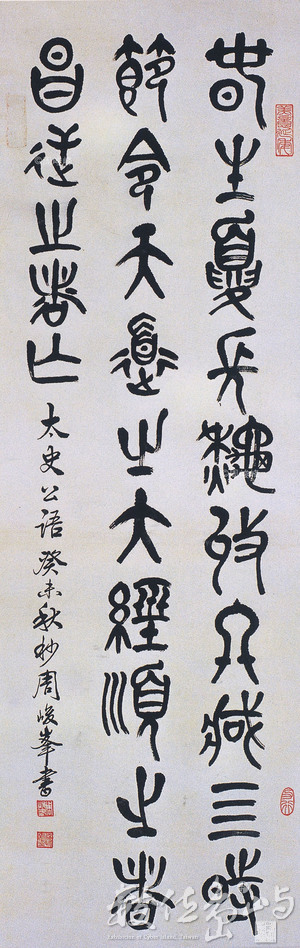 春生夏長秋收冬藏四時
節令天道之大經順之者
昌逆之者亡
太史公语癸未秋杪周峻峯書